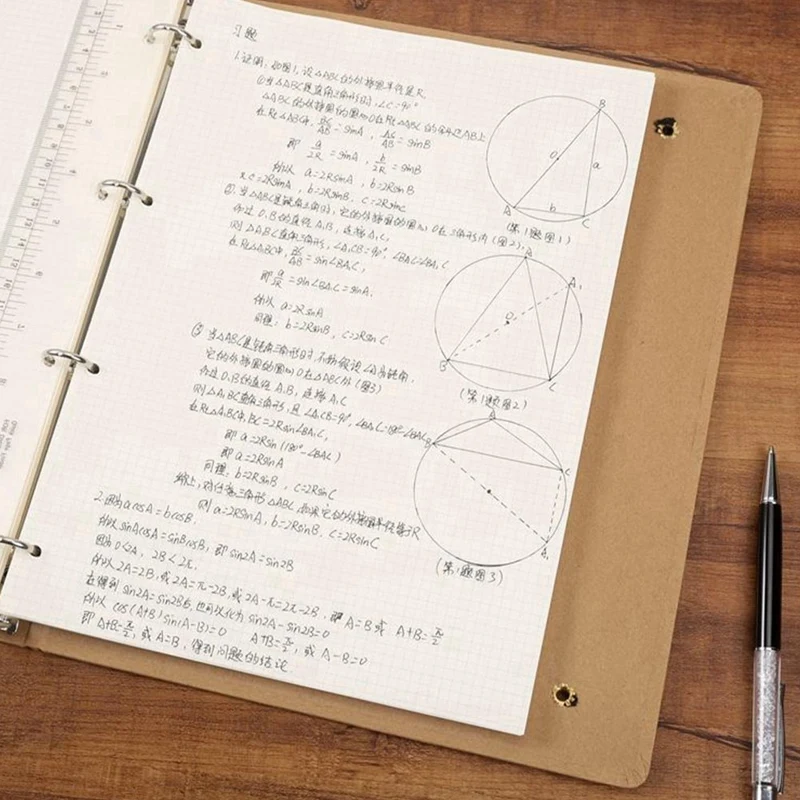 习题
1.证明:如图1,设△ABC的外接圆半径是R.
①当△ABC是直角三角形时,∠C=90°
△ABC的外接圆的圆心O在Rt△ABC的斜边AB上
在Rt△ABC中, BC/AB = sinA , AC/AB = sinB
即 a/2R = sinA , b/2R = sinB
所以 a=2RsinA , b=2RsinB
又 c=2RsinA , b=2RsinB, c=2RsinC
②.当△ABC是锐角三角形时,它的外接圆的圆心O在三角形内(图2),
作过O,B的直径A,B,连接A,C,
则△ABC直角三角形, ∠A,CB=90°, ∠BAC=∠BA,C
在Rt△ABC中, BC/AB = sin∠BA,C,
即 a/2R = sin∠BA,C = sinA,
所以 a=2RsinA
同理: b=2RsinB , c=2RsinC
③ 当△ABC是钝角三角形时,不妨假设∠A为钝角,
它的外接圆的圆心O在△ABC外(图3)
作过O,B的直径A,B,连接A,C
则△A,BC直角三角形,且∠A,CB=90°, ∠BA,C=180°-∠BAC
在Rt△A,BC中,BC=2Rsin∠BA,C,
即 a=2Rsin(180°-∠BAC)
即 a=2RsinA
同理: b=2RsinB , c=2RsinC
综上,对任意三角形△ABC, 它的外接圆半径等于R
则 a=2RsinA, b=2RsinB, c=2RsinC
2.因为acosA=bcosB,
所以sinAcosA=sinBcosB, 即 sin2A=sin2B
因为0<2A, 2B<2π,
所以2A=2B,或2A=π-2B,或2A-π=2π-2B, 即 A=B或 A+B=π/2
在得到sin2A=sin2B后,也可以化为 sin2A-sin2B=0
所以 cos(A+B)sin(A-B)=0 A+B=π/2, 或 A-B=0
即 A+B=π/2, 或 A=B, 得到问题的结论
B
O
a
A
b
C
(第1题图1)
A
A,
O
B
C
(第1题图2)
A
B
C
A,
(第1题图3)